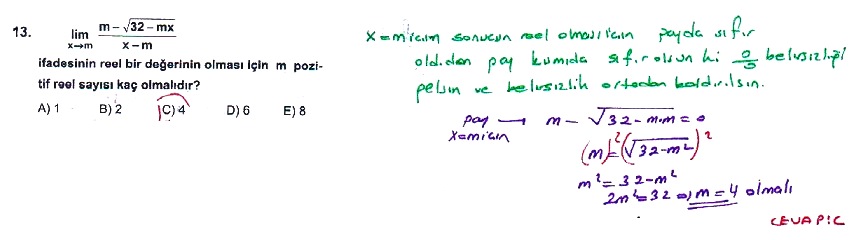 13. lim x→m (m-√32-mx)/(x-m)
ifadesinin reel bir değerinin olması için m pozi-
tif reel sayısı kaç olmalıdır?
A) 1 B) 2 C) 4 D) 6 E) 8
x=m için sonucun reel olması için payda sıfır
olduğundan pay kısmıda sıfır olsun ki 0/0 belirsizliği
gelsin ve belirsizlik ortadan kaldırılsın.
pay → m - √32-m.m = 0
x=m için
(m)²=(√32-m²)²
m²=32-m²
2m²=32 ⇒ m=4 olmalı
CEVAP:C